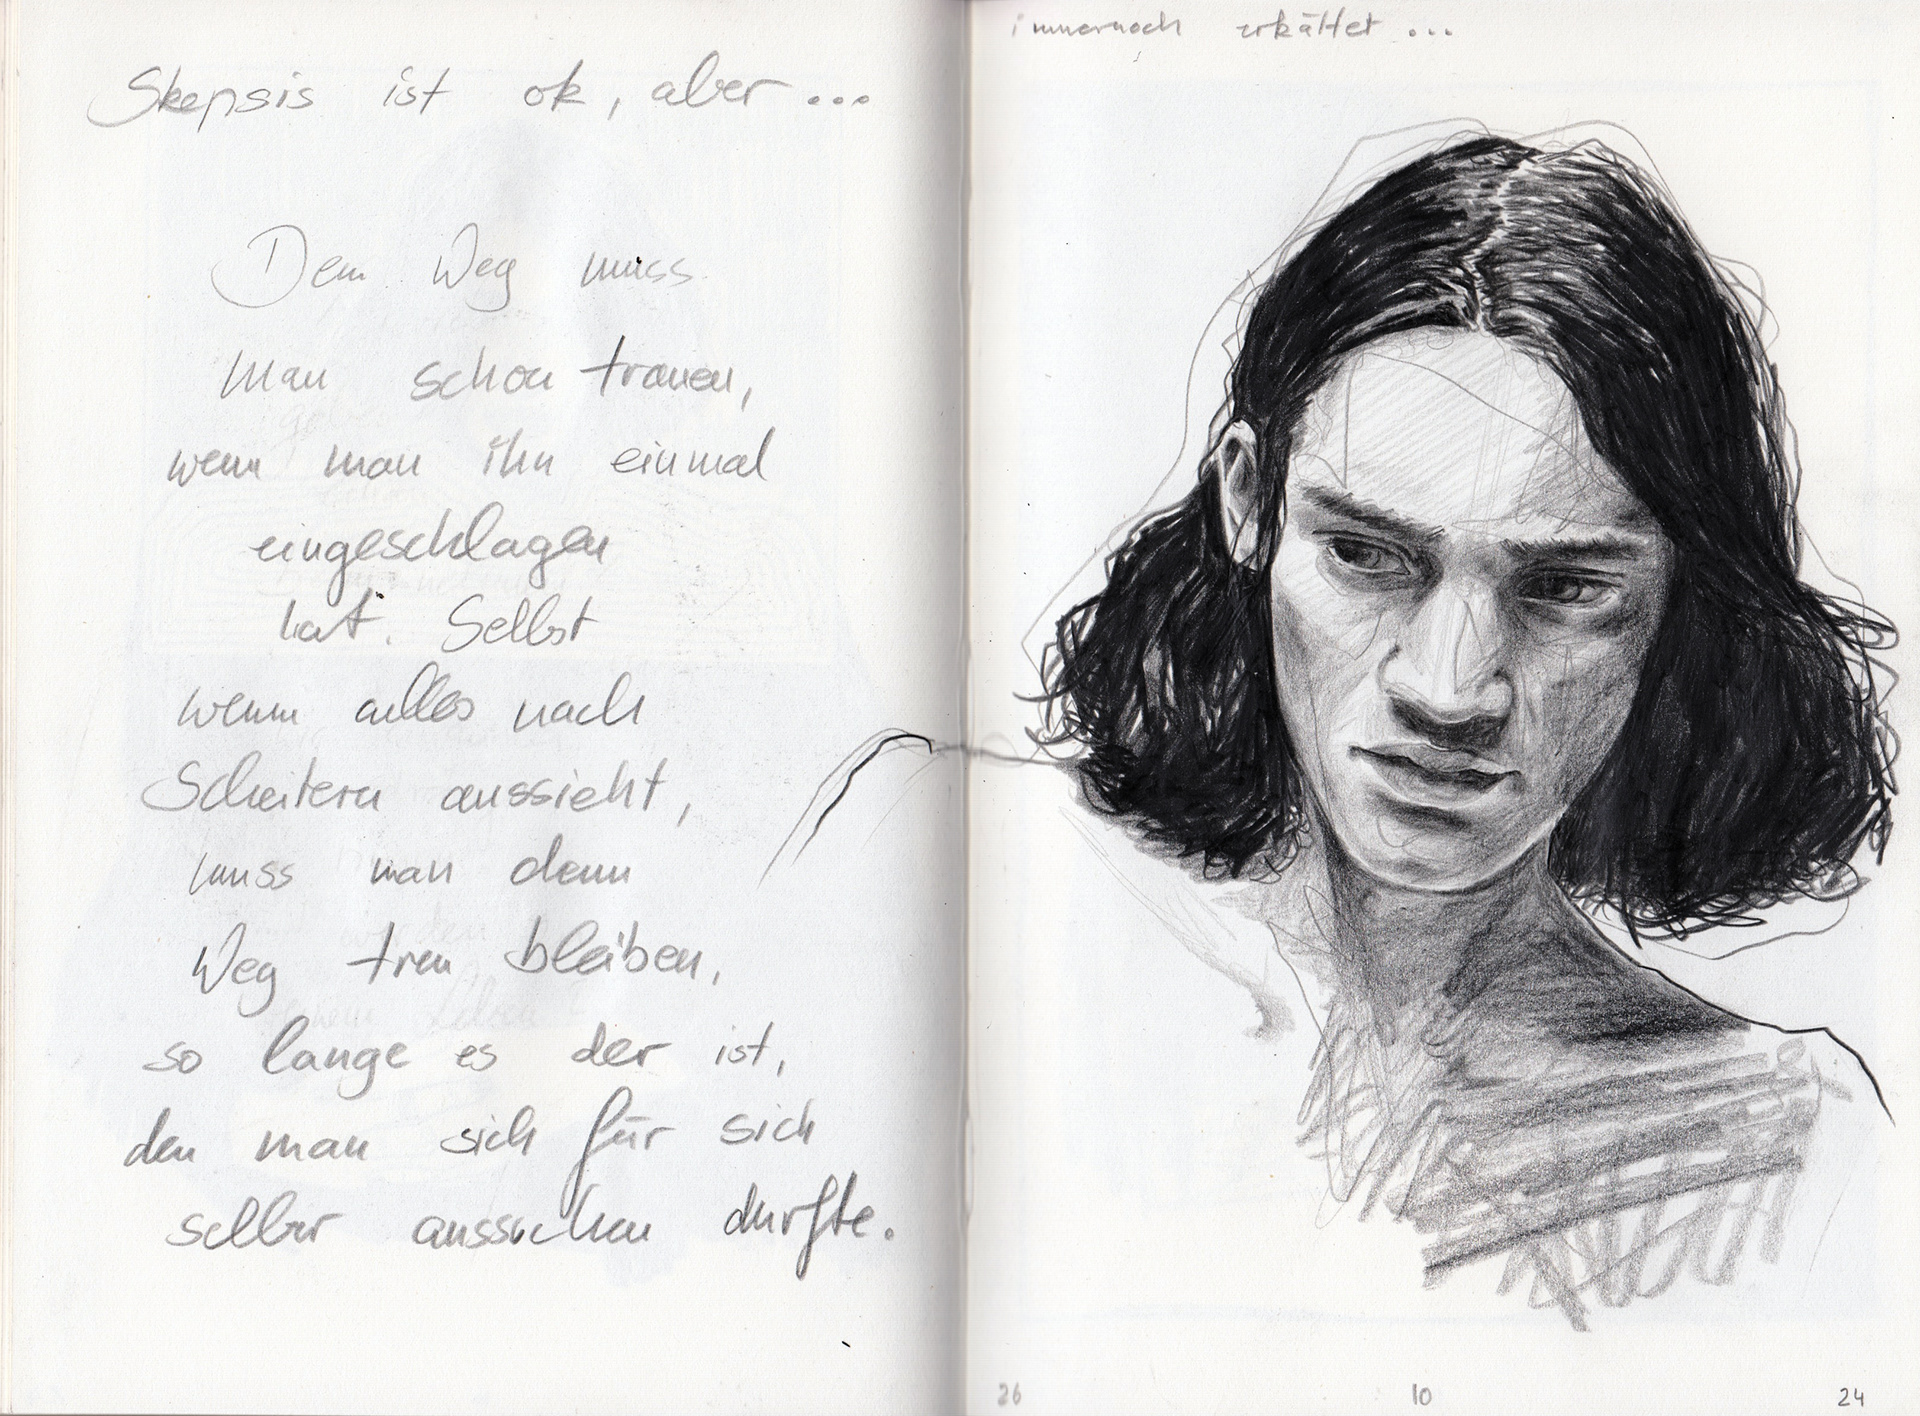 Skepsis ist ok, aber...
Dem Weg muss
man schon trauen,
wenn man ihn einmal
eingeschlagen
hat. Selbst
wenn alles nach
Scheitern aussieht,
muss man dem
Weg treu bleiben,
so lange es der ist,
den man sich für sich
selber aussuchen durfte.
immernoch erkältet...
26 10 24